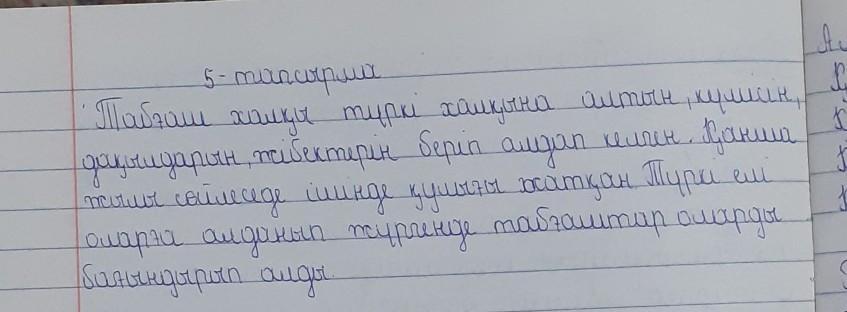 5-тапсырма
Табғаш халқы түркі халқына алтын, күмісін,
дақылдарын, жібектерін беріп алдап келген. Қанша
жылы сөйлеседе ішінде қулығы жатқан Түркі елі
оларға алданып жүргенде табғаштар оларды
бағындырып алды.